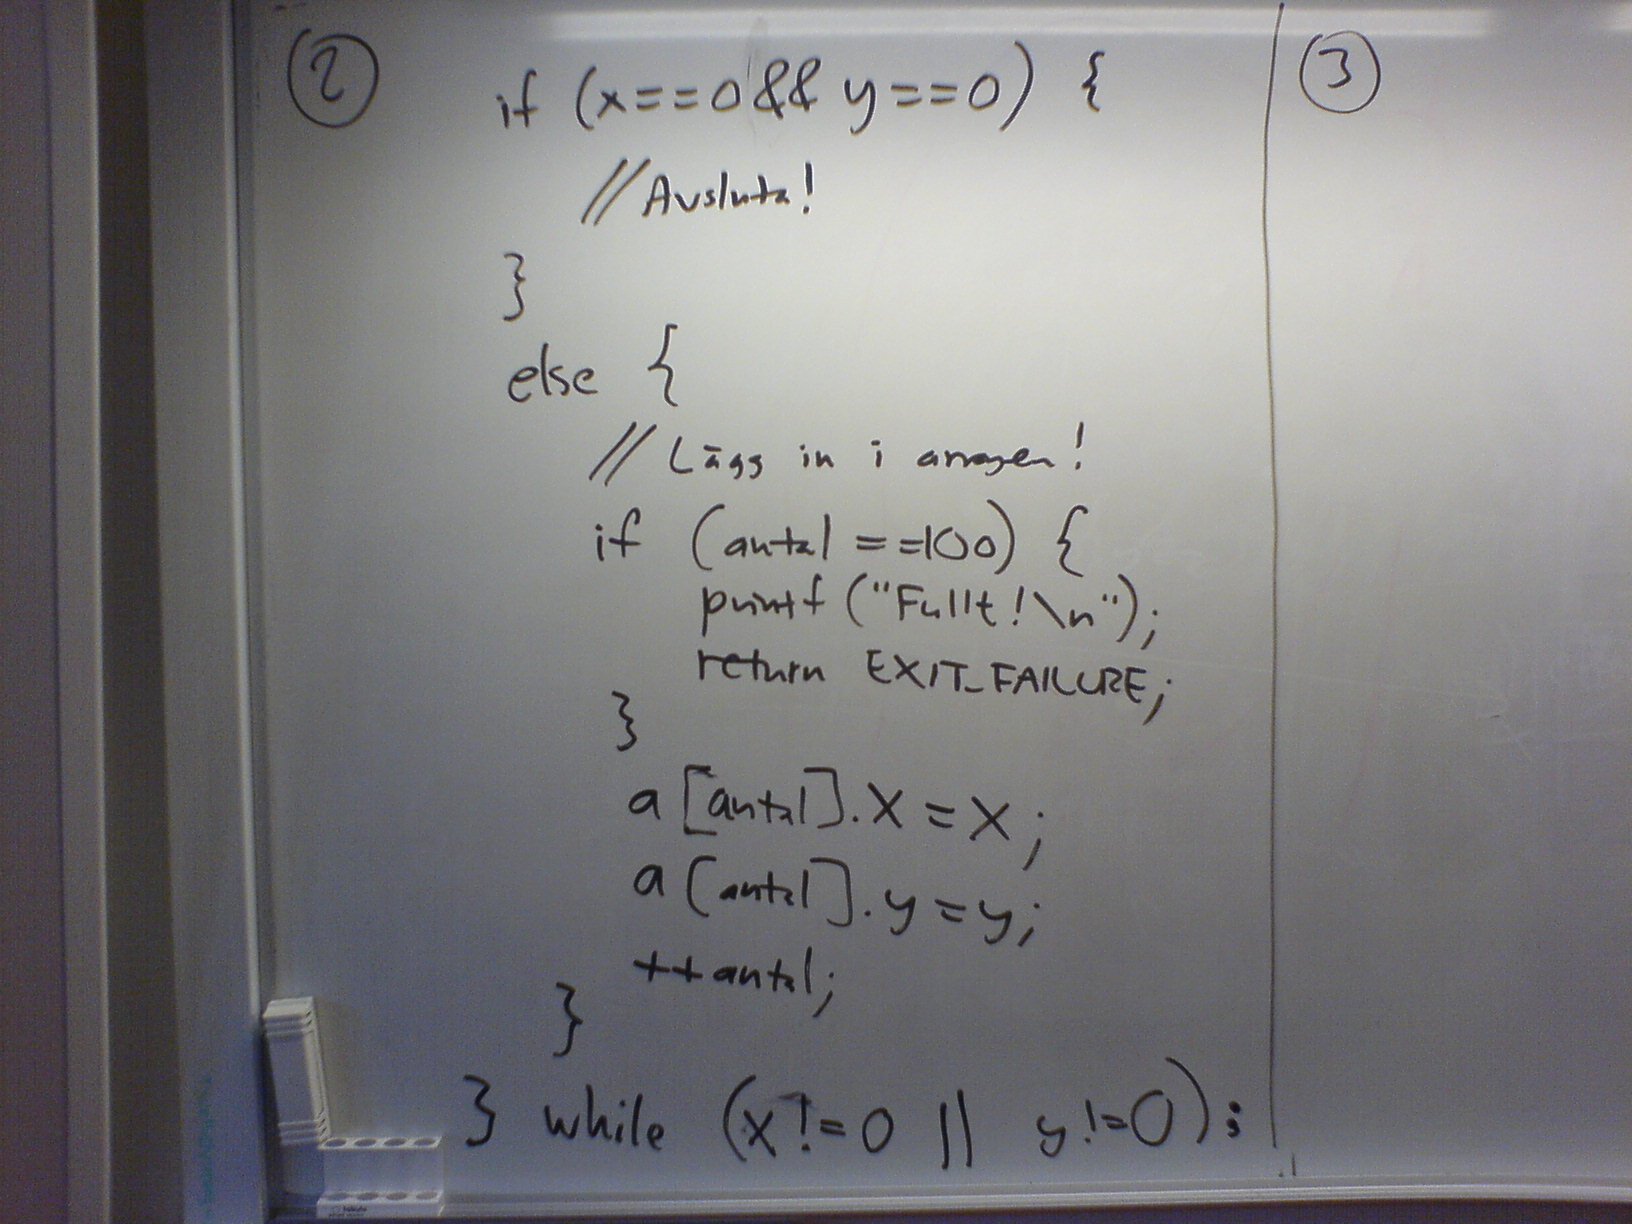 2
if (x==0 && y==0) {
//Avsluta!
}
else {
// Lägg in i arrayen!
if (antal ==100) {
printf ("Fullt!\n");
return EXIT_FAILURE;
}
a[antal].x = x;
a[antal].y = y;
++antal;
}
} while (x != 0 || y != 0);
3